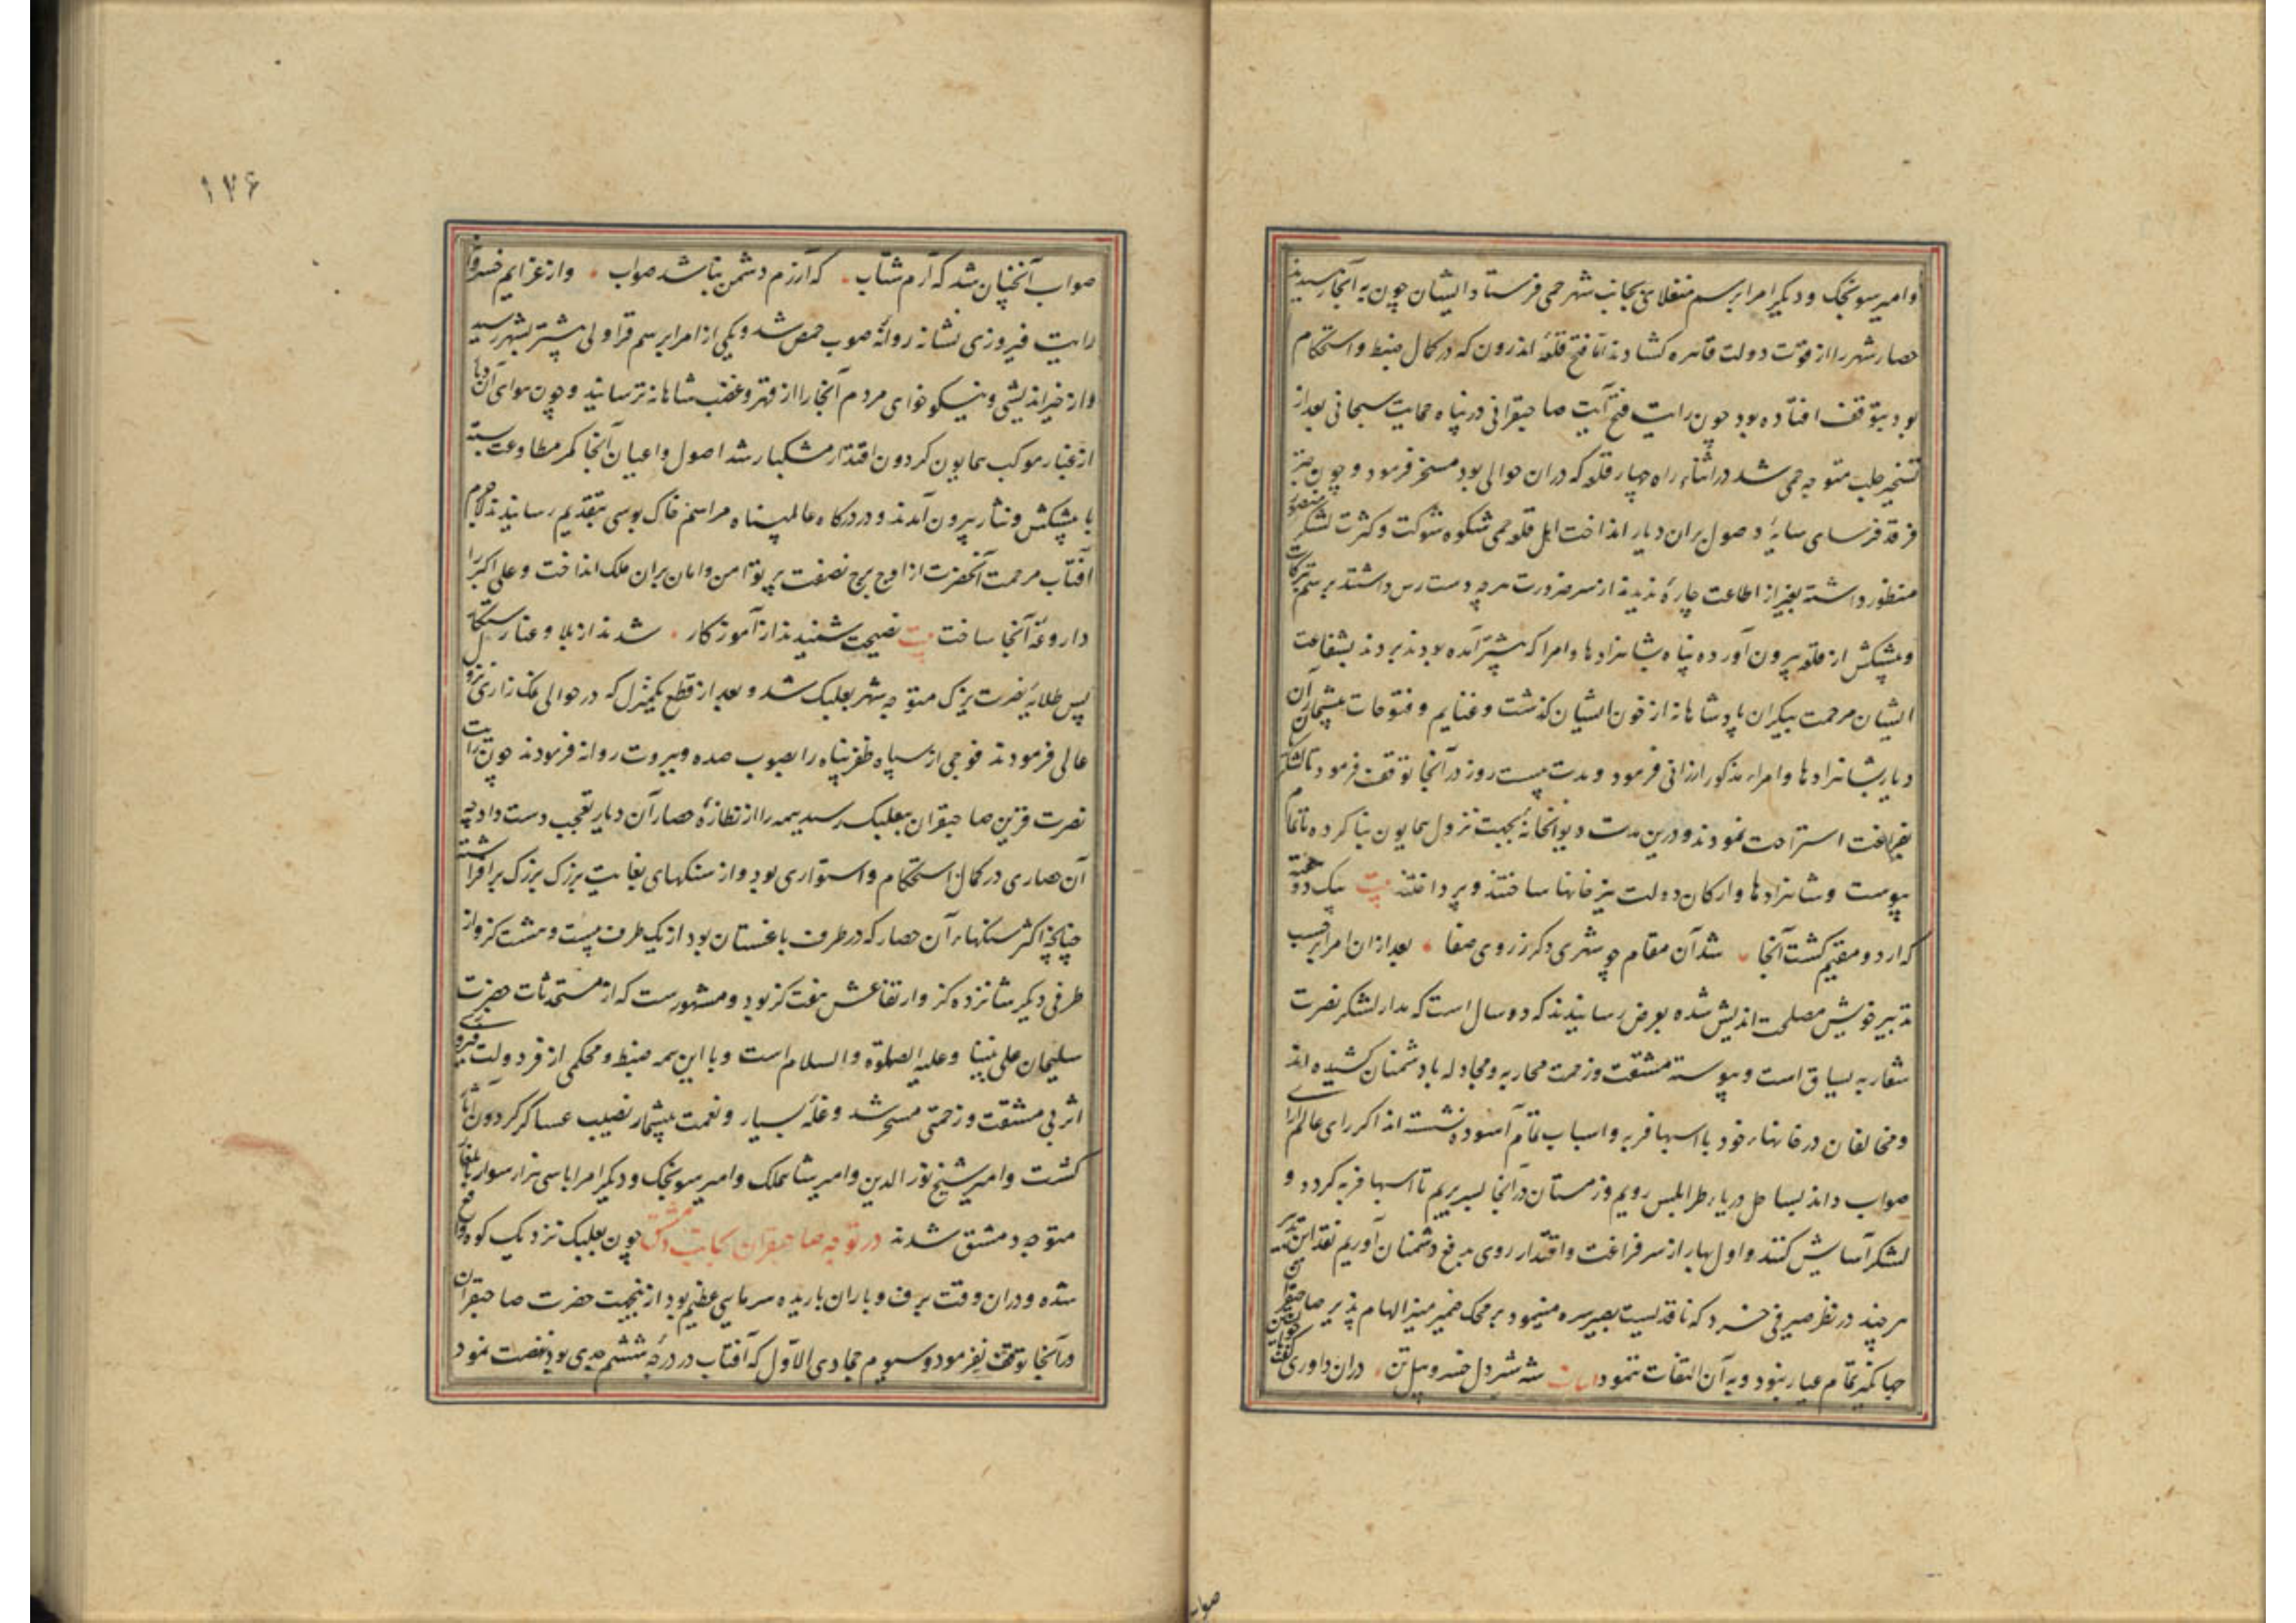 وامیر سونجک ودیکر امرا برسم منقلای بجانب شهر حمی فرستاد ایشان چون به آنجا رسیدند
حصار شهر را از قوت دولت قاهره کشادند اما فتح قلعه اندرون که در کمال ضبط واستحکام
بود بتوقف افتاده بود چون رایت فتح آیت صاحبقرانی در پناه حمایت سبحانی بعد از
تسخیر حلب متوجه حمی شد در اثناء راه چهار قلعه که دران حوالی بود مسخر فرمود و چون
فرقد فرسای سایۀ وصول بران دیار انداخت اهل قلعه حمی شکوه شوکت وکثرت لشکر منصور
منظور داشته بغیر از اطاعت چارۀ ندیدند از سر ضرورت هرچه دست رس داشتند برسم تبرکات
وپیشکش از قلعه بیرون آورده پناه بشاهزادها وامرا که پیشتر آمده بودند بردند بشفاعت
ایشان مرحمت بیکران پادشاهانه از خون ایشان کذشت وغنایم و فتوحات بیشمار آن
دیار بشاهزادها وامراء مذکور ارزانی فرمود ومدت بیست روز در آنجا توقف فرمود تا لشکر
بفراغت استراحت نمودند ودرین مدت دیوانخانۀ بجهت نزول همایون بنا کرده باتمام
پیوست وشاهزادها وارکان دولت نیز خانها ساختند وپرداختند بیت بیک دو هفته
که اردو مقیم کشت آنجا شد آن مقام چو شهری دکر ز روی صفا بعد ازان امرا برحسب
تدبیر خویش مصلحت اندیش شده بعرض رسانیدند که دو سال است که مدار لشکر نصرت
شعار به یساق است وپیوسته مشقت وزحمت محاربه ومجادله با دشمنان کشیده اند
ومخالفان در خانهاء خود با اسبها فربه واسباب تمام آسوده نشسته اند اکر رای عالم آرای
صواب داند بساحل دریاء طرابلس رویم وزمستان در آنجا بسر بریم تا اسبها فربه کردد و
لشکر آسایش کنند واول بهار از سر فراغت واقتدار روی بدفع دشمنان آوریم نقد این تدبیر
هر چند در نظر صیرفی خرد که ناقدیست بصیر سره مینمود بر محک ضمیر منیر الهام پذیر صاحبقران
جهانکیر تمام عیار نبود وبه آن التفات ننمود ابیات شه شیردل خسرو پیل تن دران داوری
صواب آنچنان شد که آرم شتاب که آرزم دشمن نباشد صواب واز عزایم خسروانه
رایت فیروزی نشانه روانۀ صوب حمص شد ویکی از امرا برسم قراولی پیشتر بشهر رسید
واز خیراندیشی ونیکوخواهی مردم آنجا را از قهر وغضب شاهانه ترسانید وچون هوای آن دیار
از غبار موکب همایون کردون اقتدار مشکبار شد اصول واعیان آنجا کمر مطاوعت بسته
با پیشکش ونثار بیرون آمدند ودر درکاه عالم پناه مراسم خاک بوسی بتقدیم رسانیدند لاجرم
آفتاب مرحمت آنحضرت از اوج برج نصفت پرتو امن وامان بران ملک انداخت وعلی اکبر را
داروغۀ آنجا ساخت بیت نصیحت شنیدند از آموزکار شدند از بلا وعنا رستکار
پس طلایۀ نصرت یزک متوجه شهر بعلبک شد وبعد از قطع یکمنزل که در حوالی نمک زاری نزول
عالی فرمودند فوجی از سپاه ظفر پناه را بصوب صیده وبیروت روانه فرمودند چون رایت
نصرت قرین صاحبقران ببعلبک رسید همه را از نظارۀ حصار آن دیار تعجب دست داد چه
آن حصاری در کمال استحکام واستواری بود واز سنکهای بغایت بزرک بزرک برافراشته
چنانچه اکثر سنکهاء آن حصار که در طرف باغستان بود از یک طرف بیست وهشت کز واز
طرفی دیکر شانزده کز وارتفاعش هفت کز بود ومشهورست که از مستحدثات حضرت
سلیمان علی نبینا وعلیه الصلوة والسلام است وبا این همه ضبط ومحکمی از فر دولت
اثر بی مشقت وزحمتی مسخر شد وغلۀ بسیار ونعمت بیشمار نصیب عساکر کردون آثار
کشت وامیر شیخ نورالدین وامیر شاهملک وامیر سونجک ودیکر امرا با سی هزار سوار بایلغار
متوجه دمشق شدند در توجه صاحبقران بجانب دمشق چون بعلبک نزدیک کوه واقع
شده ودران وقت برف وباران باریده سرمای عظیم بود ازینجهت حضرت صاحبقران
در آنجا توقف نفرمود وسیوم جمادی الاول که آفتاب در درجۀ ششم جدی بود نهضت نمود
صواب
۱۷۶